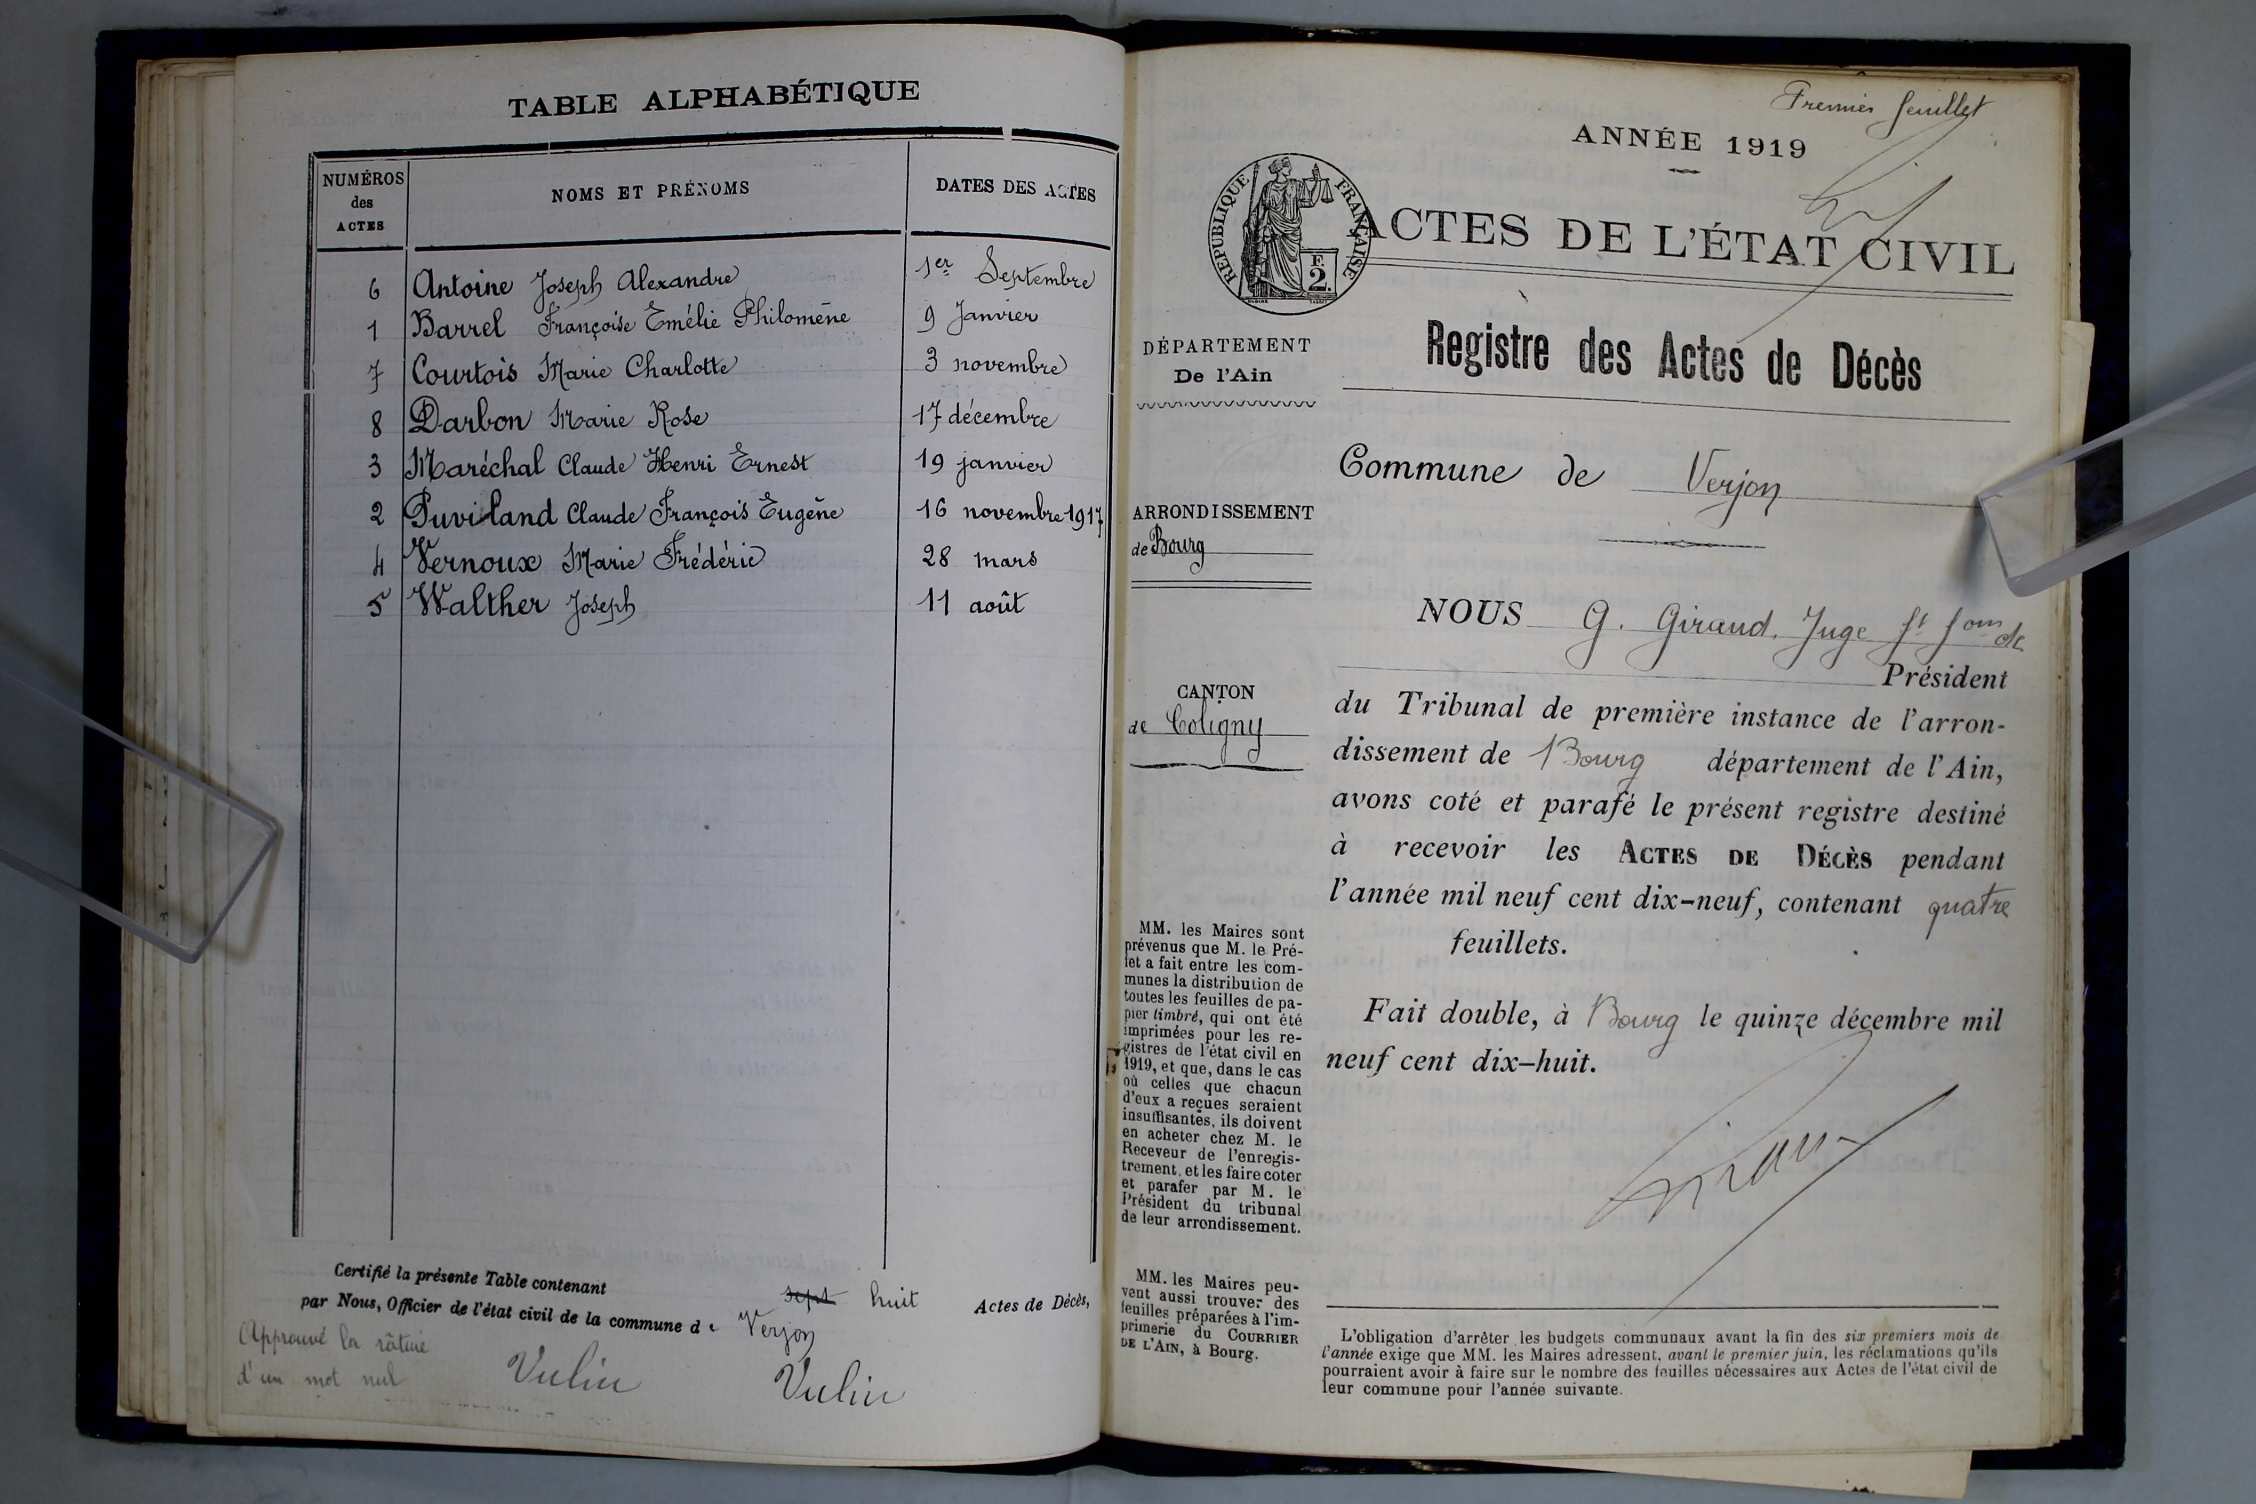 TABLE ALPHABÉTIQUE
NUMÉROS des ACTES
NOMS ET PRÉNOMS
DATES DES ACTES
6 Antoine Joseph Alexandre 1er Septembre
1 Barrel Françoise Emélie Philomène 9 Janvier
7 Courtois Marie Charlotte 3 novembre
8 Darbon Marie Rose 17 décembre
3 Maréchal Claude Henri Ernest 19 janvier
2 Puvilland Claude François Eugène 16 novembre 1917
4 Vernoux Marie Frédéric 28 mars
5 Walther Joseph 11 août
Certifié la présente Table contenant sept huit Actes de Décès,
par Nous, Officier de l'état civil de la commune de Verjon
Approuvé la râture
d'un mot nul
Vulin
Vulin
Premier feuillet
ANNÉE 1919
RÉPUBLIQUE FRANÇAISE
F.
2.
ACTES DE L'ÉTAT CIVIL
Registre des Actes de Décès
DÉPARTEMENT
De l'Ain
Commune de Verjon
ARRONDISSEMENT
de Bourg
CANTON
de Coligny
NOUS G. Giraud, Juge
Président
du Tribunal de première instance de l'arron-
dissement de Bourg département de l'Ain,
avons coté et parafé le présent registre destiné
à recevoir les ACTES DE DÉCÈS pendant
l'année mil neuf cent dix-neuf, contenant quatre
feuillets.
Fait double, à Bourg le quinze décembre mil
neuf cent dix-huit.
Giraud
MM. les Maires sont
prévenus que M. le Pré-
fet a fait entre les com-
munes la distribution de
toutes les feuilles de pa-
pier timbré, qui ont été
imprimées pour les re-
gistres de l'état civil en
1919, et que, dans le cas
où celles que chacun
d'eux a reçues seraient
insuffisantes, ils doivent
en acheter chez M. le
Receveur de l'enregis-
trement, et les faire coter
et parafer par M. le
Président du tribunal
de leur arrondissement.
MM. les Maires peu-
vent aussi trouver des
feuilles préparées à l'im-
primerie du COURRIER
DE L'AIN, à Bourg.
L'obligation d'arrêter les budgets communaux avant la fin des six premiers mois de
l'année exige que MM. les Maires adressent, avant le premier juin, les réclamations qu'ils
pourraient avoir à faire sur le nombre des feuilles nécessaires aux Actes de l'état civil de
leur commune pour l'année suivante.